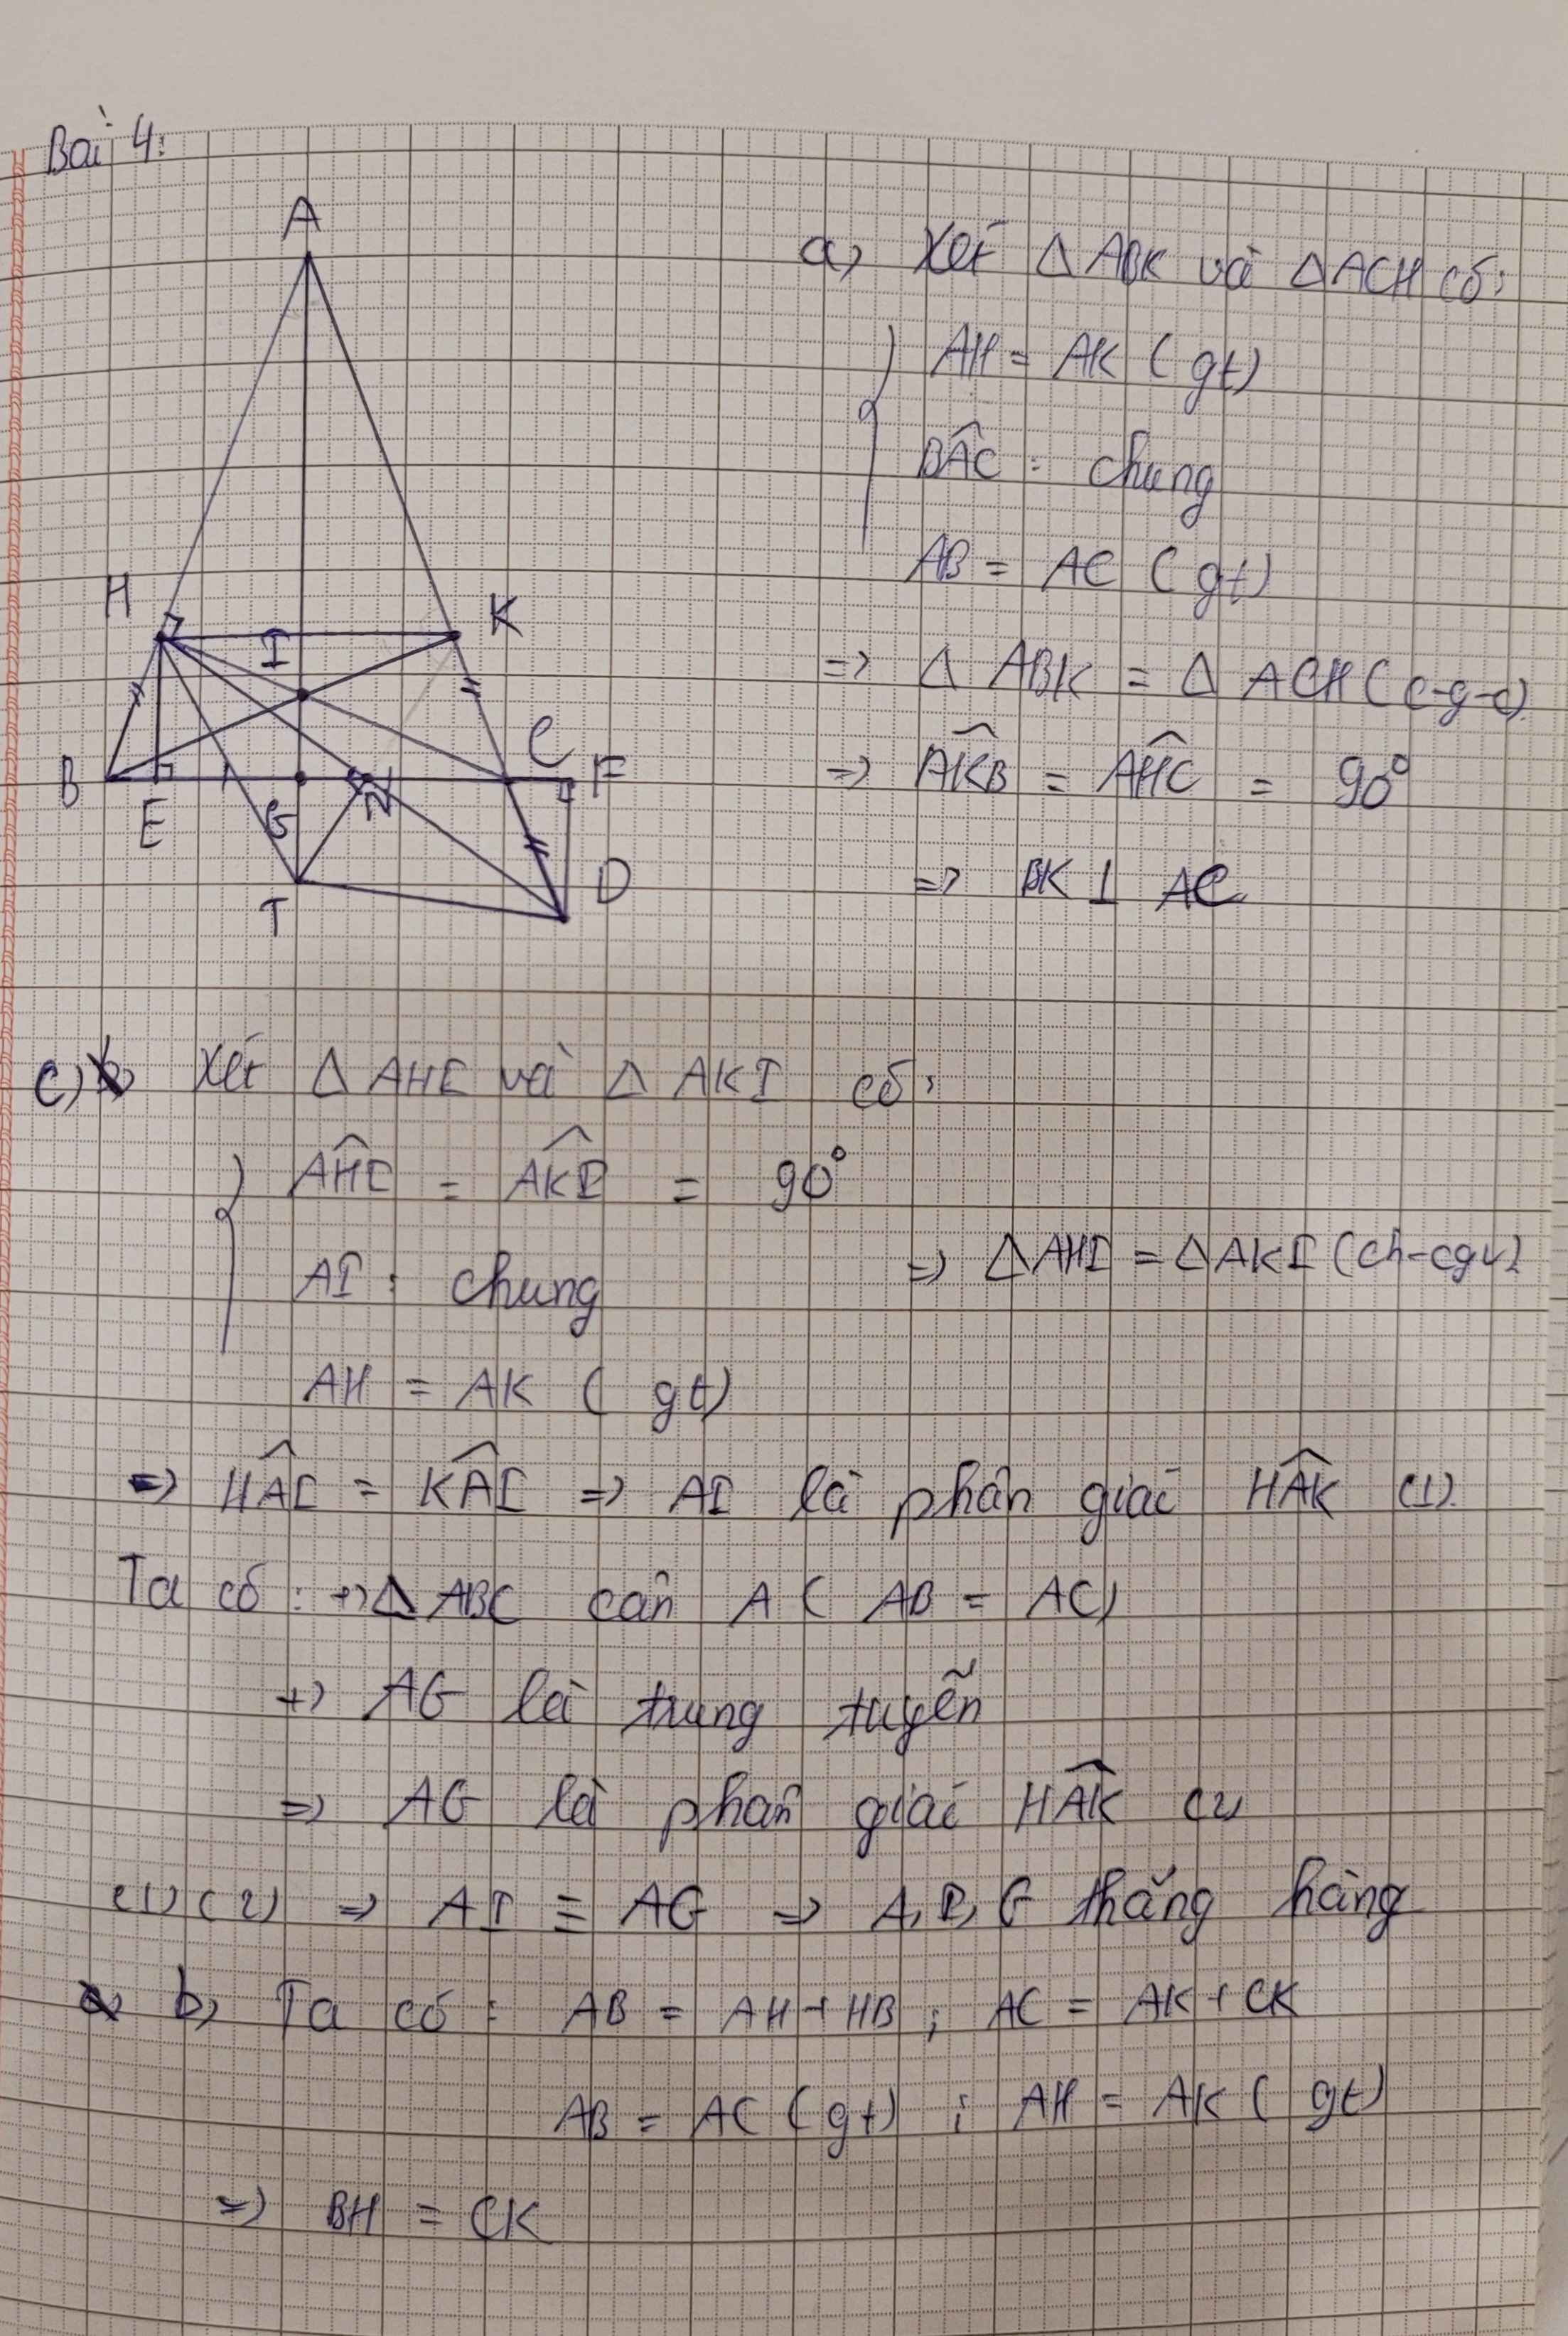 Bài 4:
A
H
K
I
B
E
G
N
C
F
T
D
a) Xét Δ ABK và Δ ACH có:
AH = AK (gt)
BÂC : chung
AB = AC (gt)
=> Δ ABK = Δ ACH (c-g-c)
=> AK̂B = AĤC = 90°
=> BK ⊥ AC
c) Xét Δ AHI và Δ AKI có:
AĤI = AK̂I = 90°
AI : chung
=> ΔAHI = ΔAKI (ch-cgv)
AH = AK (gt)
=> HÂI = KÂI => AI là phân giác HÂK (1)
Ta có : +) Δ ABC cân A ( AB = AC)
+) AG là trung tuyến
=> AG là phân giác HÂK (2)
(1) (2) => AI ≡ AG => A, I, G thẳng hàng
b) Ta có : AB = AH + HB ; AC = AK + CK
AB = AC (gt) ; AH = AK (gt)
=> BH = CK